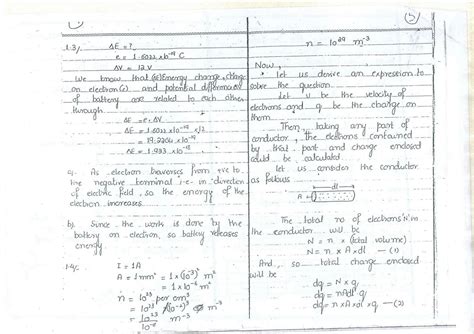 1.3/. ΔE = ?
e = 1.6022 x 10⁻¹⁹ C
ΔV = 12 V
We know that (ΔE) Energy change, charge
on electron (e) and potential difference
of battery are related to each other
through
ΔE = e·ΔV
ΔE = 1.6022 x 10⁻¹⁹ x 12
= 19.2264 x 10⁻¹⁹
ΔE = 1.923 x 10⁻¹⁸
a). As electron traverses from +ve to
the negative terminal i.e. in direction
of electric field, so the energy of the
electron increases.
b). Since the work is done by the
battery on electron, so battery releases
energy.
1.4/. I = 1A
A = 1 mm² = 1 x (10⁻³)² m²
= 1 x 10⁻⁶ m²
n = 10²³ per cm³
= 10²³ / (10⁻²)³ m⁻³
= 10²³ / 10⁻⁶ m⁻³
5
n = 10²⁹ m⁻³
Now,
Let us derive an expression to
solve the question.
Let v be the velocity of
electrons and q be the charge on
them
Then, taking any part of
conductor, the electrons contained
by that part and charge enclosed
could be calculated
Let us consider the conductor
as follows
dl
A
The total no of electrons 'N' in
the conductor will be
N = n x (total volume)
N = n x A x dl — (1)
And, so total charge enclosed
will be
dq = N x q
dq = nAdl q
dq = n x A x dl x q — (2)